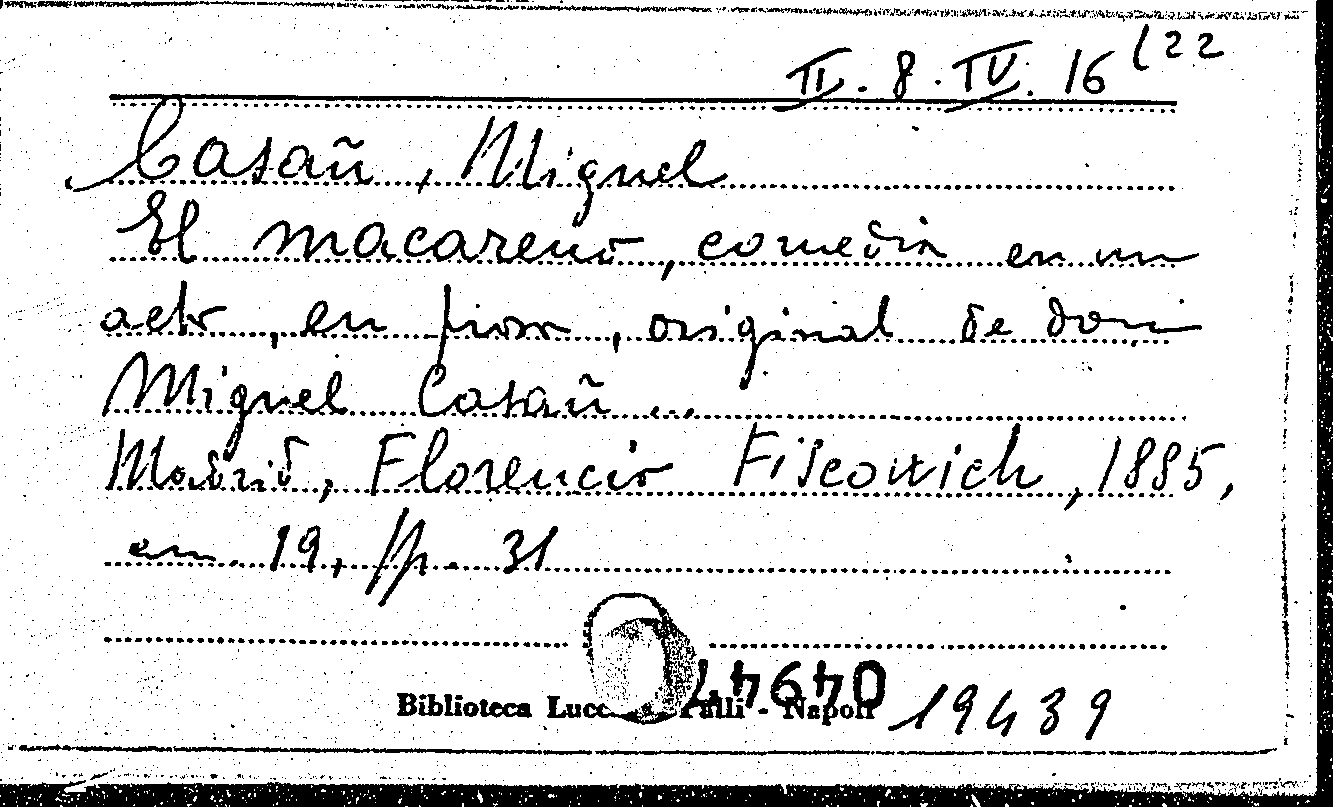 II. 8. IV. 16 (22
Casañ, Miguel
El macareno, comedia en un
acto, en prosa, original de don
Miguel Casañ ...
Madrid, Florencio Fiscowich, 1885,
cm. 19, pp. 31
Biblioteca Lucchesi Palli - Napoli 19439